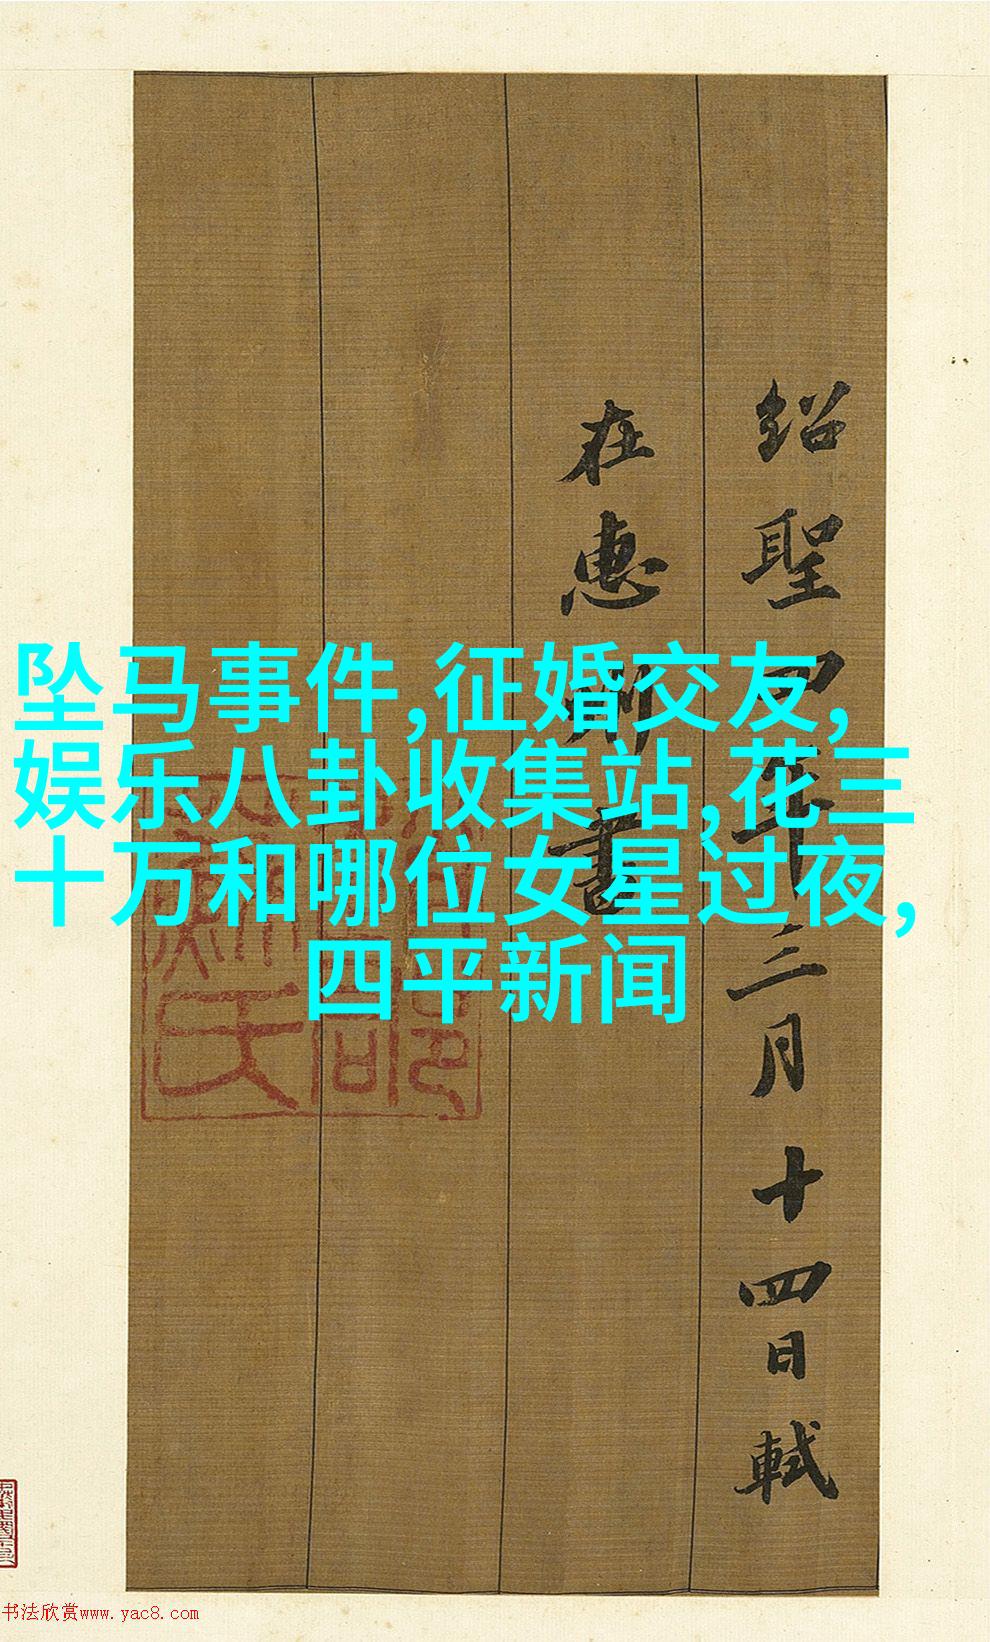 坠马事件,征婚交友,
娱乐八卦收集站,花三
十万和哪位女星过夜,
四平新闻
紹聖四年三月十四日軾
在惠州書
书法欣赏www.yac8.com